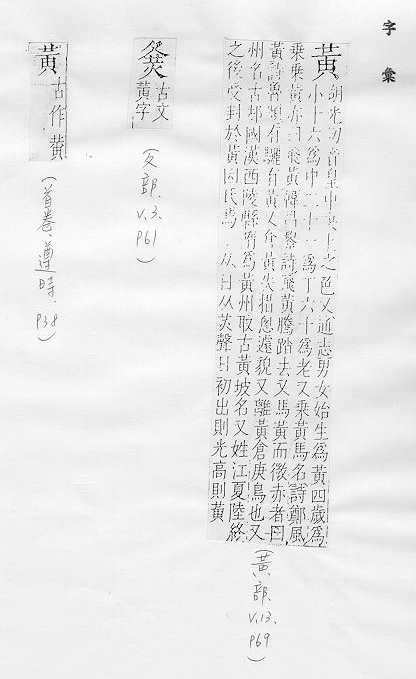 字彙
黃 胡光切音皇中央土之色又通志男女始生為黃四歲為
小十六為中二十一為丁六十為老又乘黃馬名詩鄭風
乘乘黃亦曰飛黃韓昌黎詩飛黃騰踏去又馬黃而微赤者曰
黃詩魯頌有驪有黃又
州名古邾國漢西陵縣隋為黃州取古黃坡名又姓江夏陸終
之後受封於黃因氏焉 从日从炗聲日初出則光高則黃
(黃部 V.13. P69)
古文
黃字
(攵部 V.3. P61)
黃 古作黃
(首卷 遵時 P38)